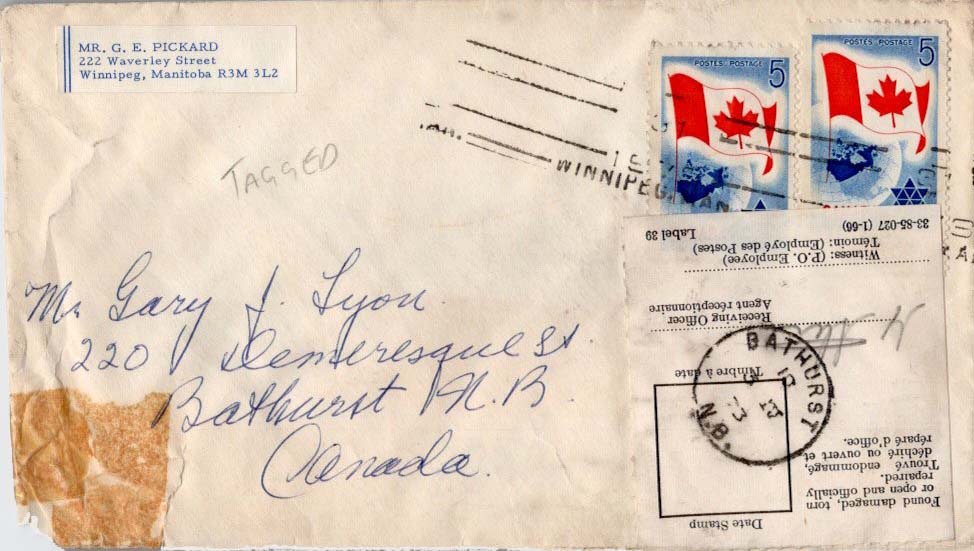 MR. G. E. PICKARD
222 Waverley Street
Winnipeg, Manitoba R3M 3L2
TAGGED
POSTES - POSTAGE 5
POSTES - POSTAGE 5
WINNIPEG, MAN
Mr Gary J. Lyon
220 Demeresque St.
Bathurst N.B.
Canada.
Label 39
33-85-027 (1-66)
Witness: (P.O. Employee)
Témoin: (Employé des Postes)
Receiving Officer
Agent réceptionnaire
Timbre à date
Date Stamp
BATHURST
N.B.
Found damaged, torn
or open and officially
repaired.
Trouvé endommagé,
déchiré ou ouvert et
réparé d'office.